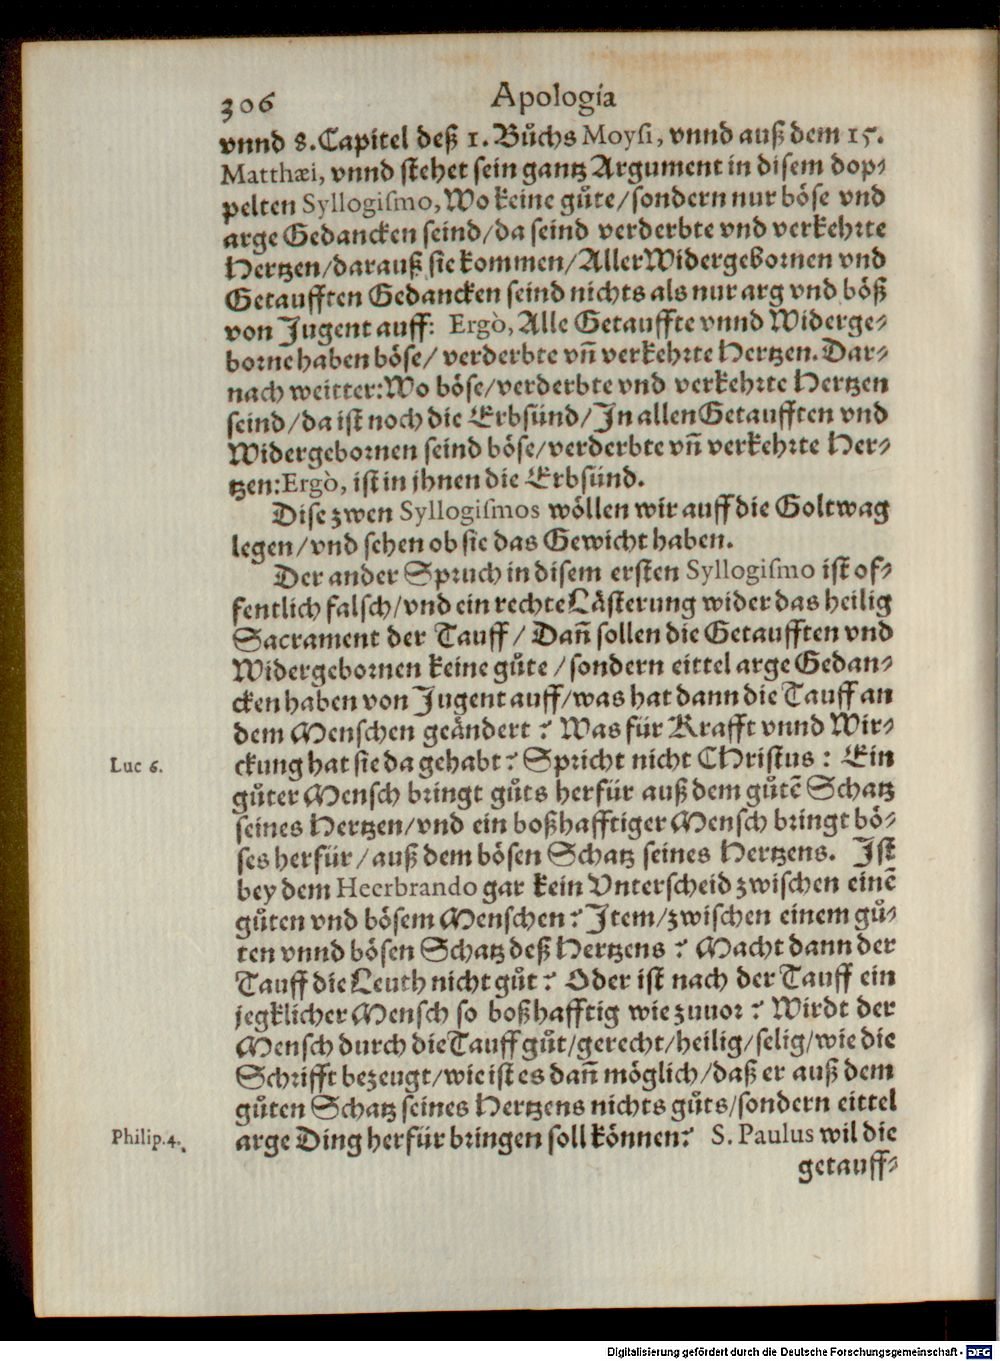 306 Apologia
vnnd 8. Capitel deß 1. Bůchs Moysi, vnnd auß dem 15.
Matthæi, vnnd stehet sein gantz Argument in disem dop-
pelten Syllogismo, Wo keine gůte/sondern nur böse vnd
arge Gedancken seind/da seind verderbte vnd verkehrte
Hertzen/darauß sie kommen/Aller Widergebornen vnd
Getaufften Gedancken seind nichts als nur arg vnd böß
von Jugent auff: Ergò, Alle Getauffte vnnd Widerge-
borne haben böse/ verderbte vñ verkehrte Hertzen. Dar-
nach weitter: Wo böse/verderbte vnd verkehrte Hertzen
seind/da ist noch die Erbsünd/In allen Getaufften vnd
Widergebornen seind böse/verderbte vñ verkehrte Her-
tzen: Ergò, ist in jhnen die Erbsünd.
Dise zwen Syllogismos wöllen wir auff die Goltwag
legen/vnd sehen ob sie das Gewicht haben.
Der ander Spruch in disem ersten Syllogismo ist of-
fentlich falsch/vnd ein rechte Lästerung wider das heilig
Sacrament der Tauff/ Dañ sollen die Getaufften vnd
Widergebornen keine gůte/sondern eittel arge Gedan-
cken haben von Jugent auff/was hat dann die Tauff an
dem Menschen geändert? Was für Krafft vnnd Wir-
Luc 6.
ckung hat sie da gehabt? Spricht nicht CHristus: Ein
gůter Mensch bringt gůts herfür auß dem gůtẽ Schatz
seines Hertzen/vnd ein boßhafftiger Mensch bringt bö-
ses herfür/auß dem bösen Schatz seines Hertzens. Ist
bey dem Heerbrando gar kein Vnterscheid zwischen einẽ
gůten vnd bösem Menschen? Item/zwischen einem gů-
ten vnnd bösen Schatz deß Hertzens? Macht dann der
Tauff die Leuth nicht gůt? Oder ist nach der Tauff ein
jegklicher Mensch so boßhafftig wie zuuor? Wirdt der
Mensch durch die Tauff gůt/gerecht/heilig/selig/wie die
Schrifft bezeugt/wie ist es dañ möglich/daß er auß dem
gůten Schatz seines Hertzens nichts gůts/sondern eittel
Philip. 4.
arge Ding herfür bringen soll können? S. Paulus wil die
getauff-
Digitalisierung gefördert durch die Deutsche Forschungsgemeinschaft - DFG